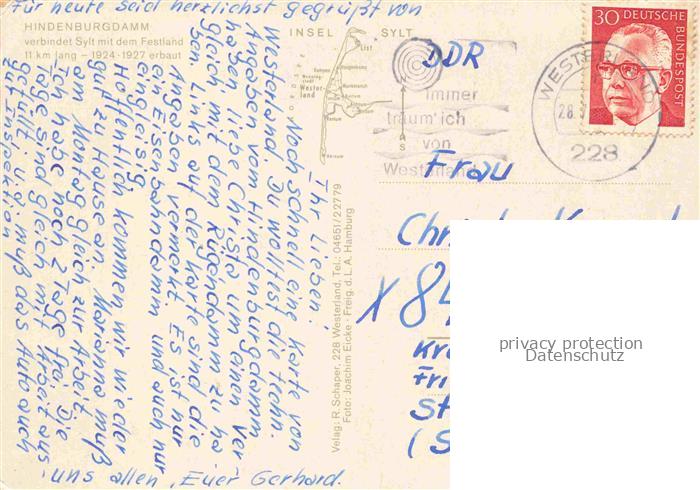 HINDENBURGDAMM
verbindet Sylt mit dem Festland
11 km lang – 1924-1927 erbaut
INSEL SYLT
List
Westerland
Verlag: R. Schaper, 228 Westerland, Tel.: 04651/22779
Foto: Joachim Eicke · Freig. d. L.A. Hamburg
30 DEUTSCHE
BUNDESPOST
WESTERLAND
28.
228
immer
träum' ich
von
Westerland
Ihr Lieben!
Noch schnell eine Karte von
Westerland. Du wolltest die techn.
Angaben vom Hindenburgdamm
haben liebe Christa um einen Ver-
gleich mit dem Rügendamm zu ha
ben. Links auf der Karte sind die
Angaben vermerkt. Es ist nur
ein Eisenbahndamm und auch nur
eingleisig.
Hoffentlich kommen wir wieder
gut zu Hause an. Marianne muß
am Montag gleich zur Arbeit.
Ich habe noch 2 Tage frei. Die
Tage sind gleich mit Arbeit aus-
gefüllt, u. a. muß das Auto auch
zur Inspektion.
Für heute seid herzlichst gegrüßt von
uns allen, Euer Gerhard.
DDR
Frau
Chr
X 8
Kr
Fri
St
(S
privacy protection
Datenschutz